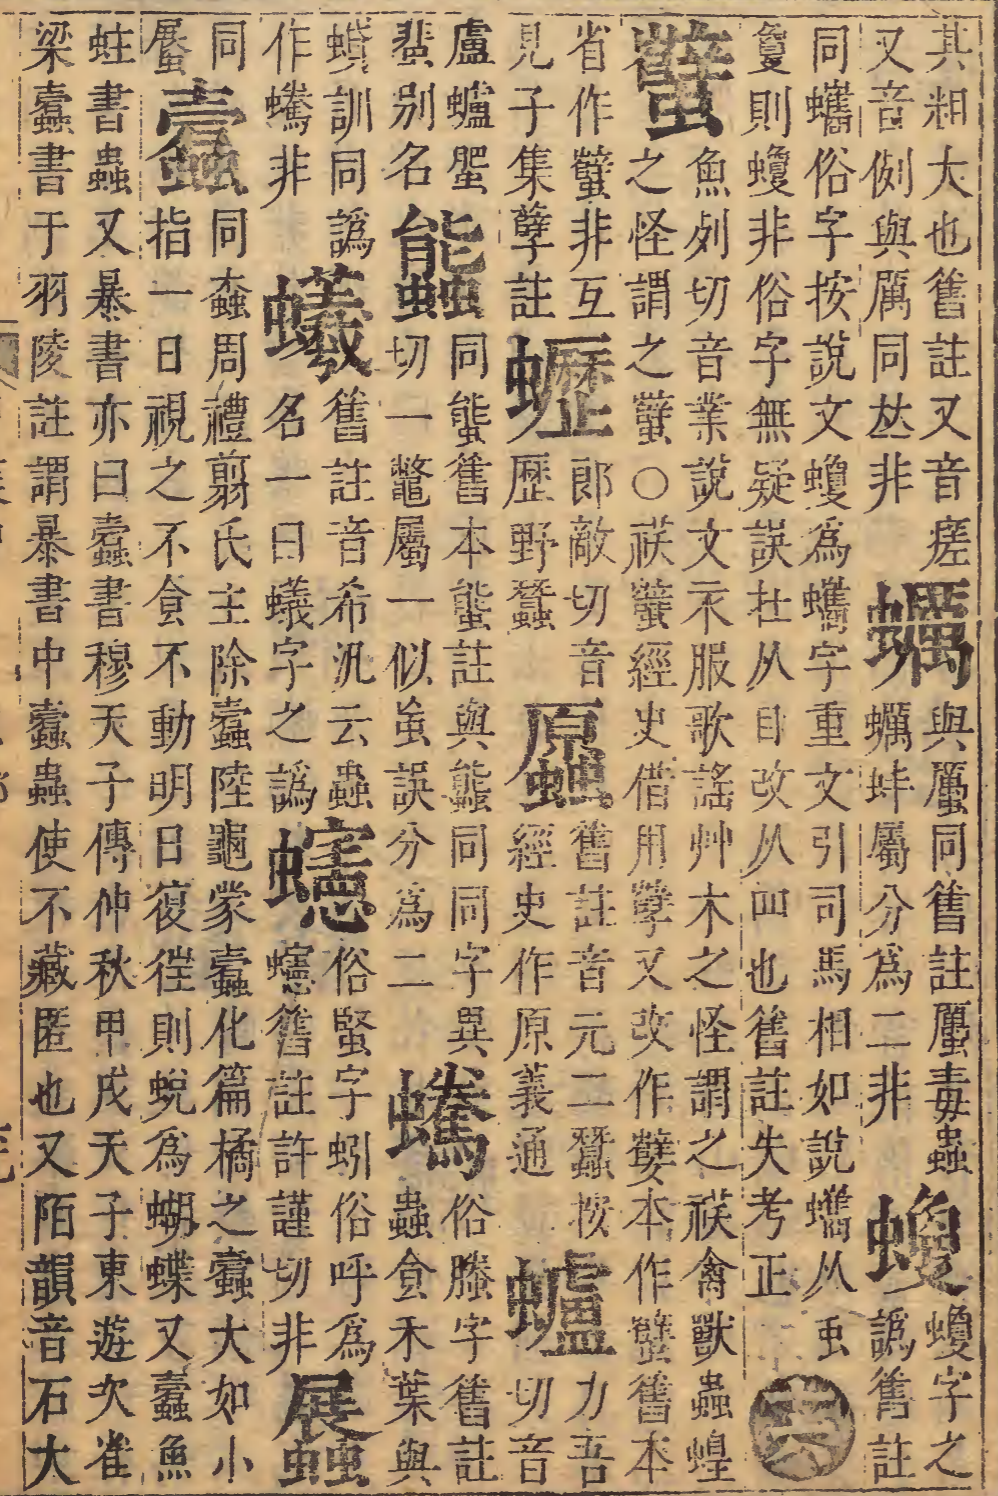 其粗大也舊註又音瘥
又音例與厲同𠀤非
蠣
與䘈同舊註䘈毒蟲
蠣蚌屬分爲二非
𧓎
𧓎字之
譌舊註
同蠵俗字按說文𧓎爲蠵字重文引司馬相如說蠵从虫
敻則𧓎非俗字無疑誤在从目改从罒也舊註失考正
蠥
魚列切音業說文衣服歌謠艸木之怪謂之祅禽獸蟲蝗
之怪謂之蠥○祅蠥經史借用孽又改作孼本作蠥舊本
省作蠥非互
見子集孽註
𧔝
郎敵切音
歷野蠶
𧕎
舊註音元二蠶按
經史作原義通
蠦
力吾
切音
盧蠦䖻
蜚別名
同螚舊本螚註與䘅同同字異
切一鼈屬一似䖟誤分爲二
俗螣字舊註
蟲食禾葉與
蟘訓同譌
作䲢非
舊註音希汎云蟲
名一曰蟻字之譌
䘆
俗䝨字蚓俗呼爲
䘆舊註許謹切非
同
蜃
蠹
同螙周禮翦氏主除蠹陸龜蒙蠹化篇橘之蠹大如小
指一日視之不食不動明日復往則蛻爲蝴蝶又蠹魚
蛀書蟲又暴書亦曰蠹書穆天子傳仲秋甲戌天子東遊次雀
梁蠹書于羽陵註謂暴書中蠹蟲使不藏匿也又陌韻音石大